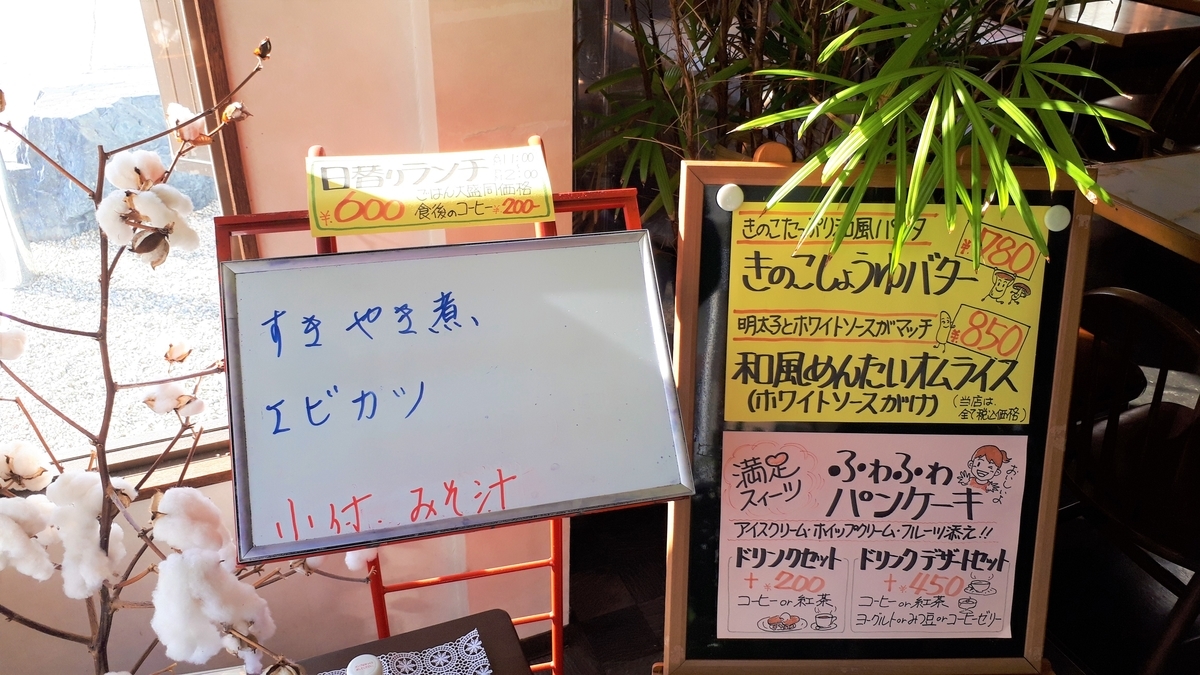 日替りランチ
ごはん大盛同価格
¥600 食後のコーヒー ¥200-
すきやき煮、
エビカツ
小付、みそ汁
きのこたっぷり和風パスタ
¥780
きのこしょうゆバター
明太子とホワイトソースがマッチ
¥850
和風めんたいオムライス
(ホワイトソースがけ)
(当店は、
全て税込価格)
満足
スイーツ
ふわふわ
パンケーキ
おいしいよ
アイスクリーム・ホイップクリーム・フルーツ添え!!
ドリンクセット
+¥200
コーヒーor紅茶
ドリンクデザートセット
+¥450
コーヒーor紅茶
ヨーグルトorみつ豆orコーヒーゼリー